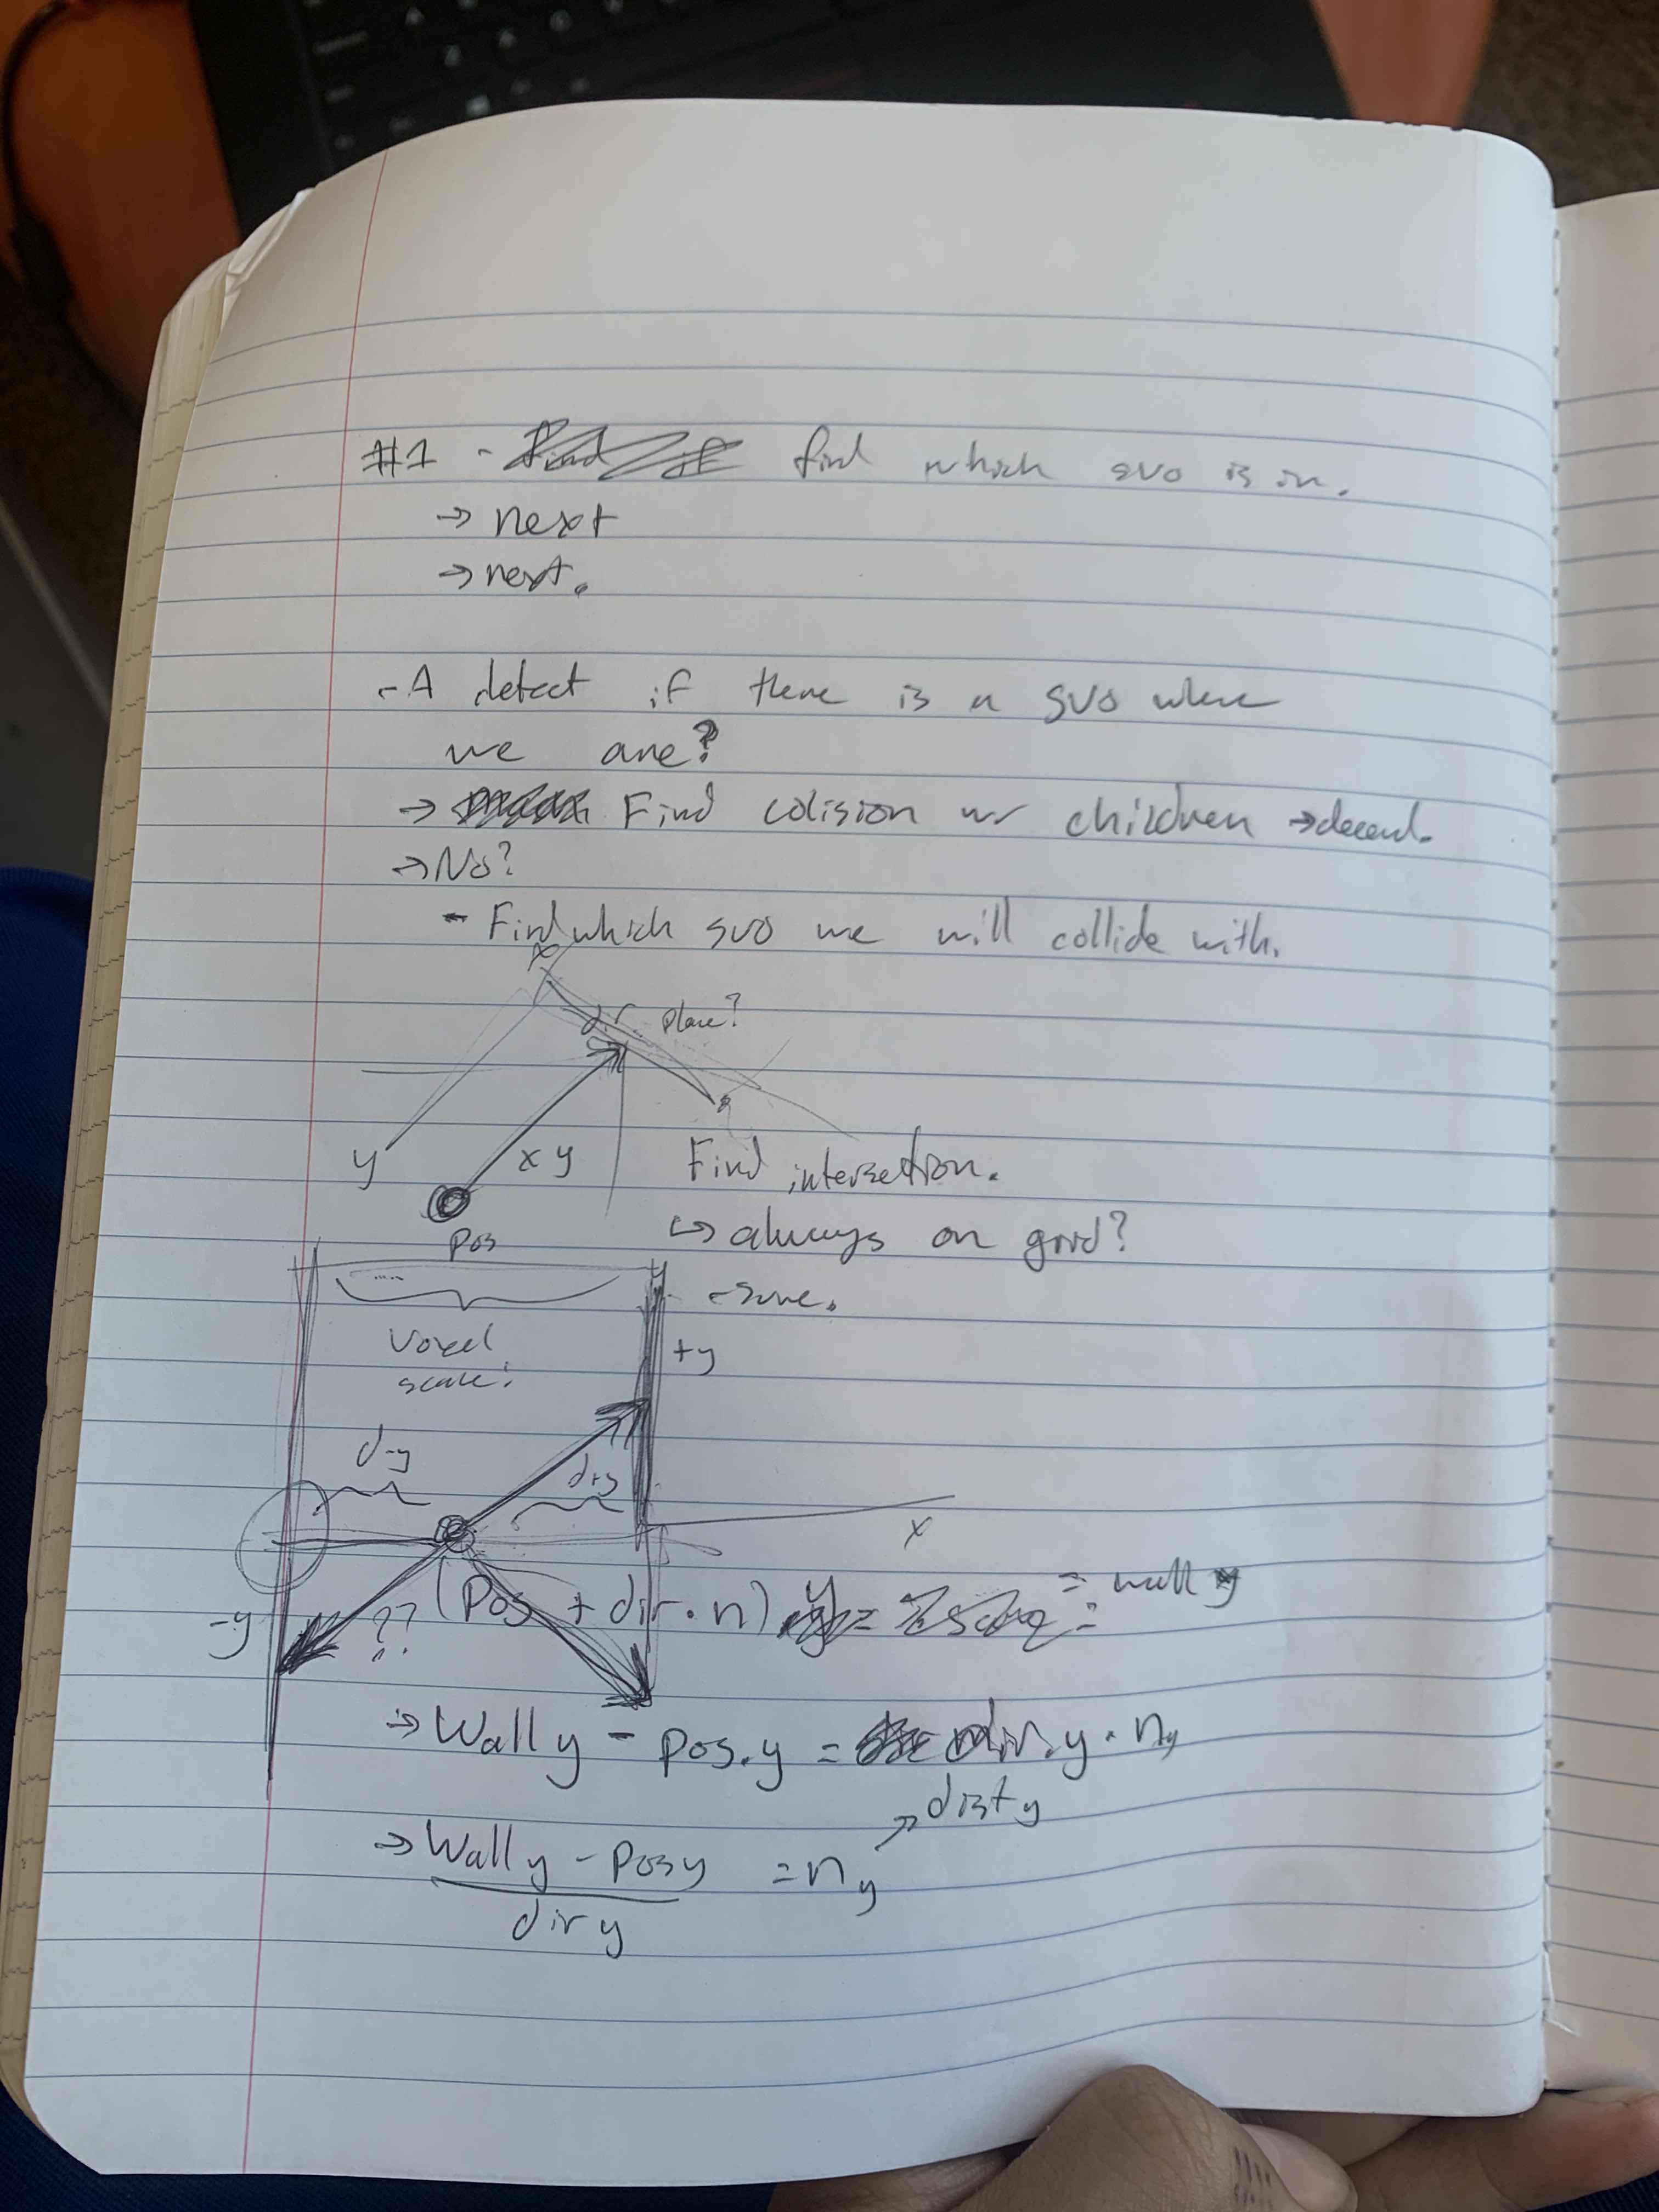 #1 - find which svo is in.
→ next
→ next.
- A detect if there is a svo where
we are?
→ Find colision w children → decend.
→ No?
- Find which svo we will collide with.
dir plane?
y
x y
Find intersetion.
pos
↳ always on grid?
Voxel
scale
+y
d-y
d+y
x
-y
??
(Pos + dir · n) y = wall y
→ Wall y - pos.y = dir.y · ny
dist y
→ Wall y - Pos y = n y
dir y